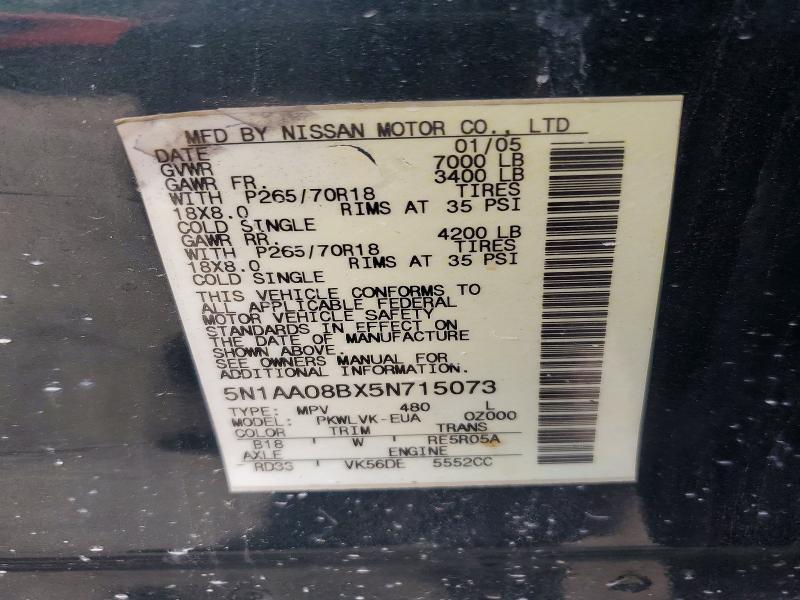 MFD BY NISSAN MOTOR CO., LTD
DATE 01/05
GVWR 7000 LB
GAWR FR. 3400 LB
WITH P265/70R18 TIRES
18X8.0 RIMS AT 35 PSI
COLD SINGLE
GAWR RR. 4200 LB
WITH P265/70R18 TIRES
18X8.0 RIMS AT 35 PSI
COLD SINGLE
THIS VEHICLE CONFORMS TO
ALL APPLICABLE FEDERAL
MOTOR VEHICLE SAFETY
STANDARDS IN EFFECT ON
THE DATE OF MANUFACTURE
SHOWN ABOVE.
SEE OWNERS MANUAL FOR
ADDITIONAL INFORMATION.
5N1AA08BX5N715073
TYPE: MPV 480 L
MODEL: PKWLVK-EUA 0Z000
COLOR TRIM TRANS
B18 W RE5R05A
AXLE ENGINE
RD33 VK56DE 5552CC